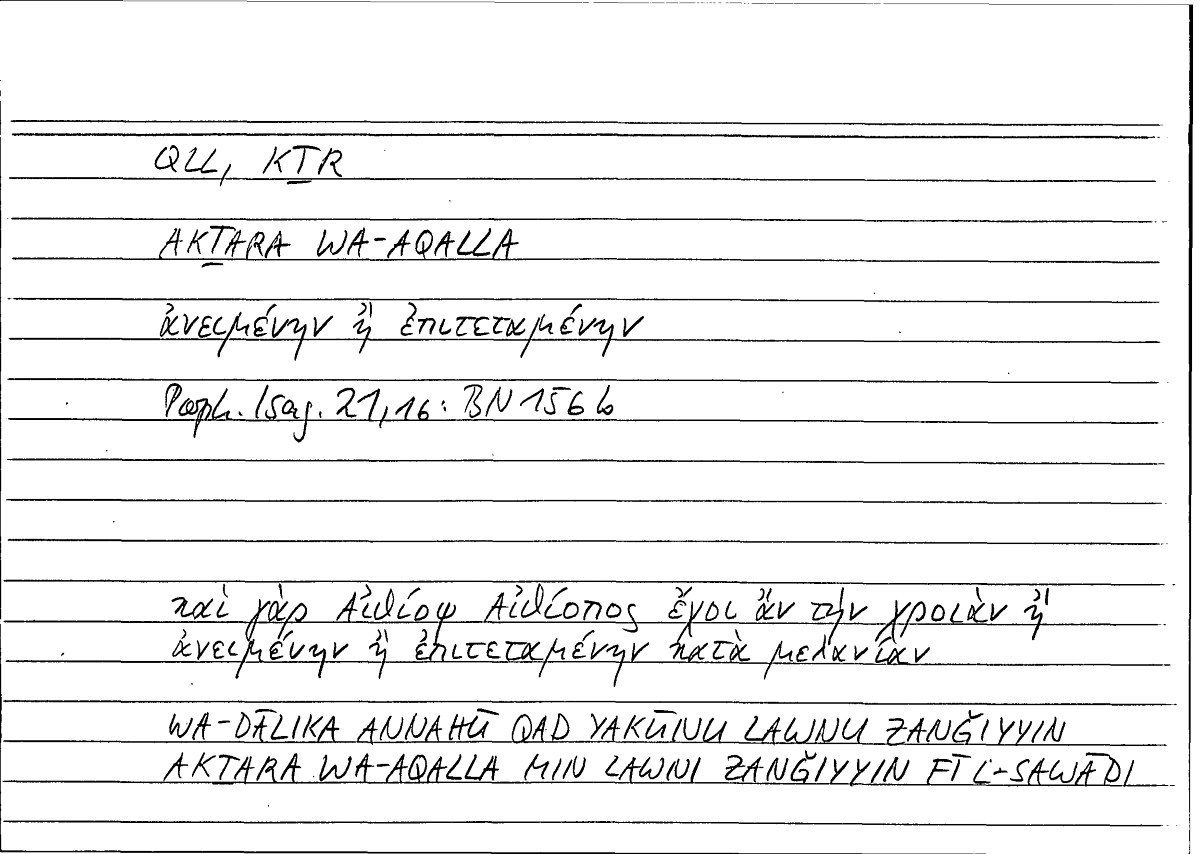 QLL, KṮR
AKṮARA WA-AQALLA
ἀνειμένην ἢ ἐπιτεταμένην
Porph. Isag. 21,16: BN 156 b
καὶ γὰρ Αἰθίοψ Αἰθίοπος ἔχοι ἂν τὴν χροιὰν ἢ
ἀνειμένην ἢ ἐπιτεταμένην κατὰ μελανίαν
WA-DĀLIKA ANNAHŪ QAD YAKŪNU LAWNU ZANǦIYYIN
AKṮARA WA-AQALLA MIN LAWNI ZANǦIYYIN FĪ L-SAWĀDI